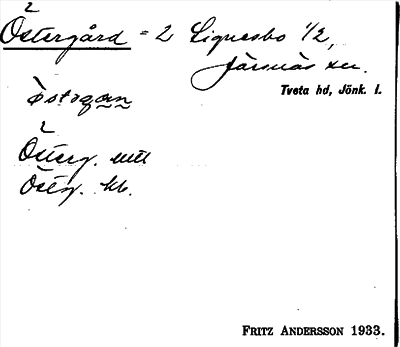 2
Östergård = 2 Signesbo 1/2,
Järsnäs sn.
Tveta hd, Jönk. l.
östəgan
2
Österg. mtl
Österg. kb.
FRITZ ANDERSSON 1933.